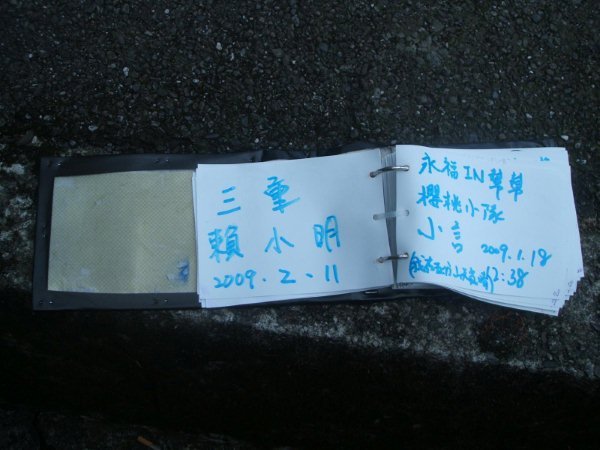 三重
賴小明
2009.2.11
永福IN草草
櫻桃小隊
小言 2009.1.18
2:38